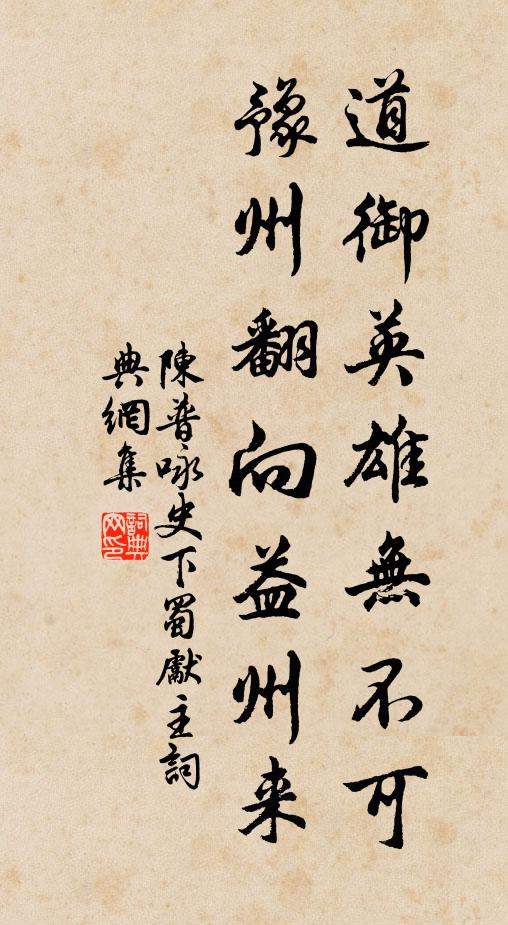 道御英雄無不可
豫州翻向益州来
陳普咏史下蜀獻主詞
典網集
詞典
网印